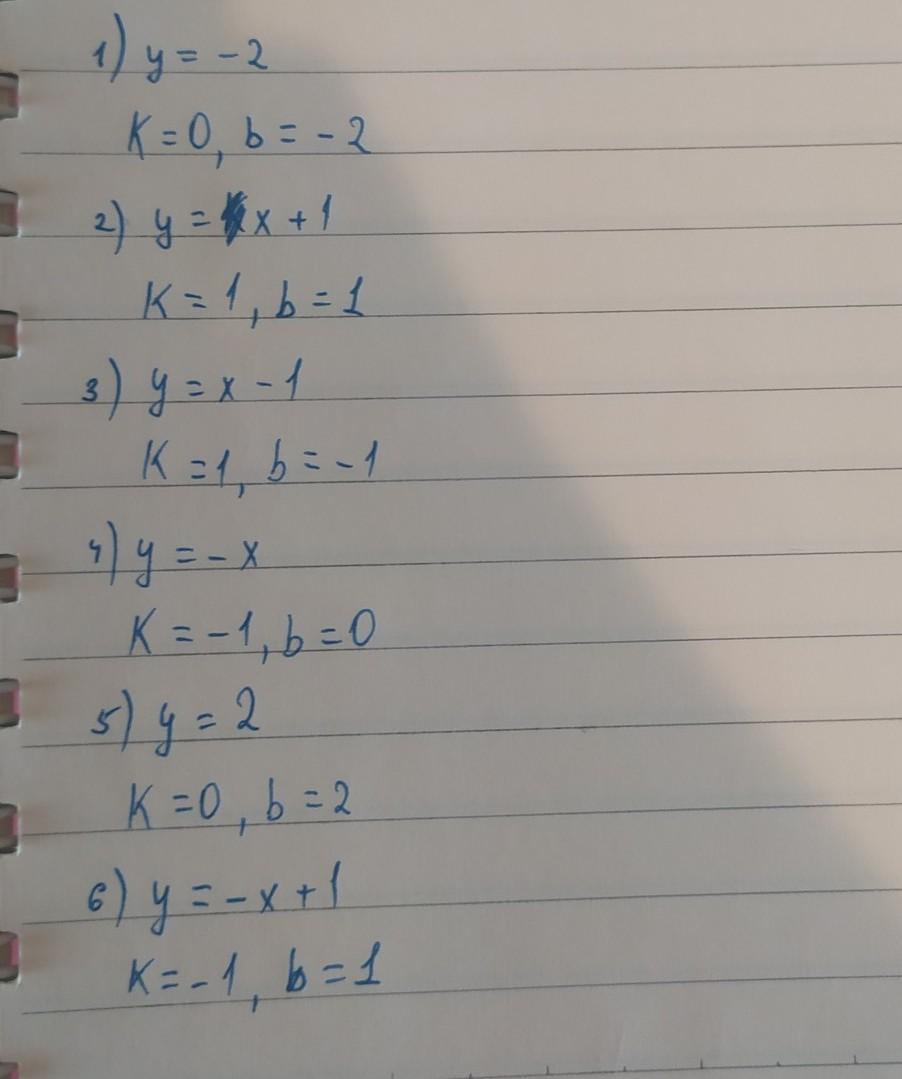 1) y = -2
K = 0, b = -2
2) y = x + 1
K = 1, b = 1
3) y = x - 1
K = 1, b = -1
4) y = -x
K = -1, b = 0
5) y = 2
K = 0, b = 2
6) y = -x + 1
K = -1, b = 1